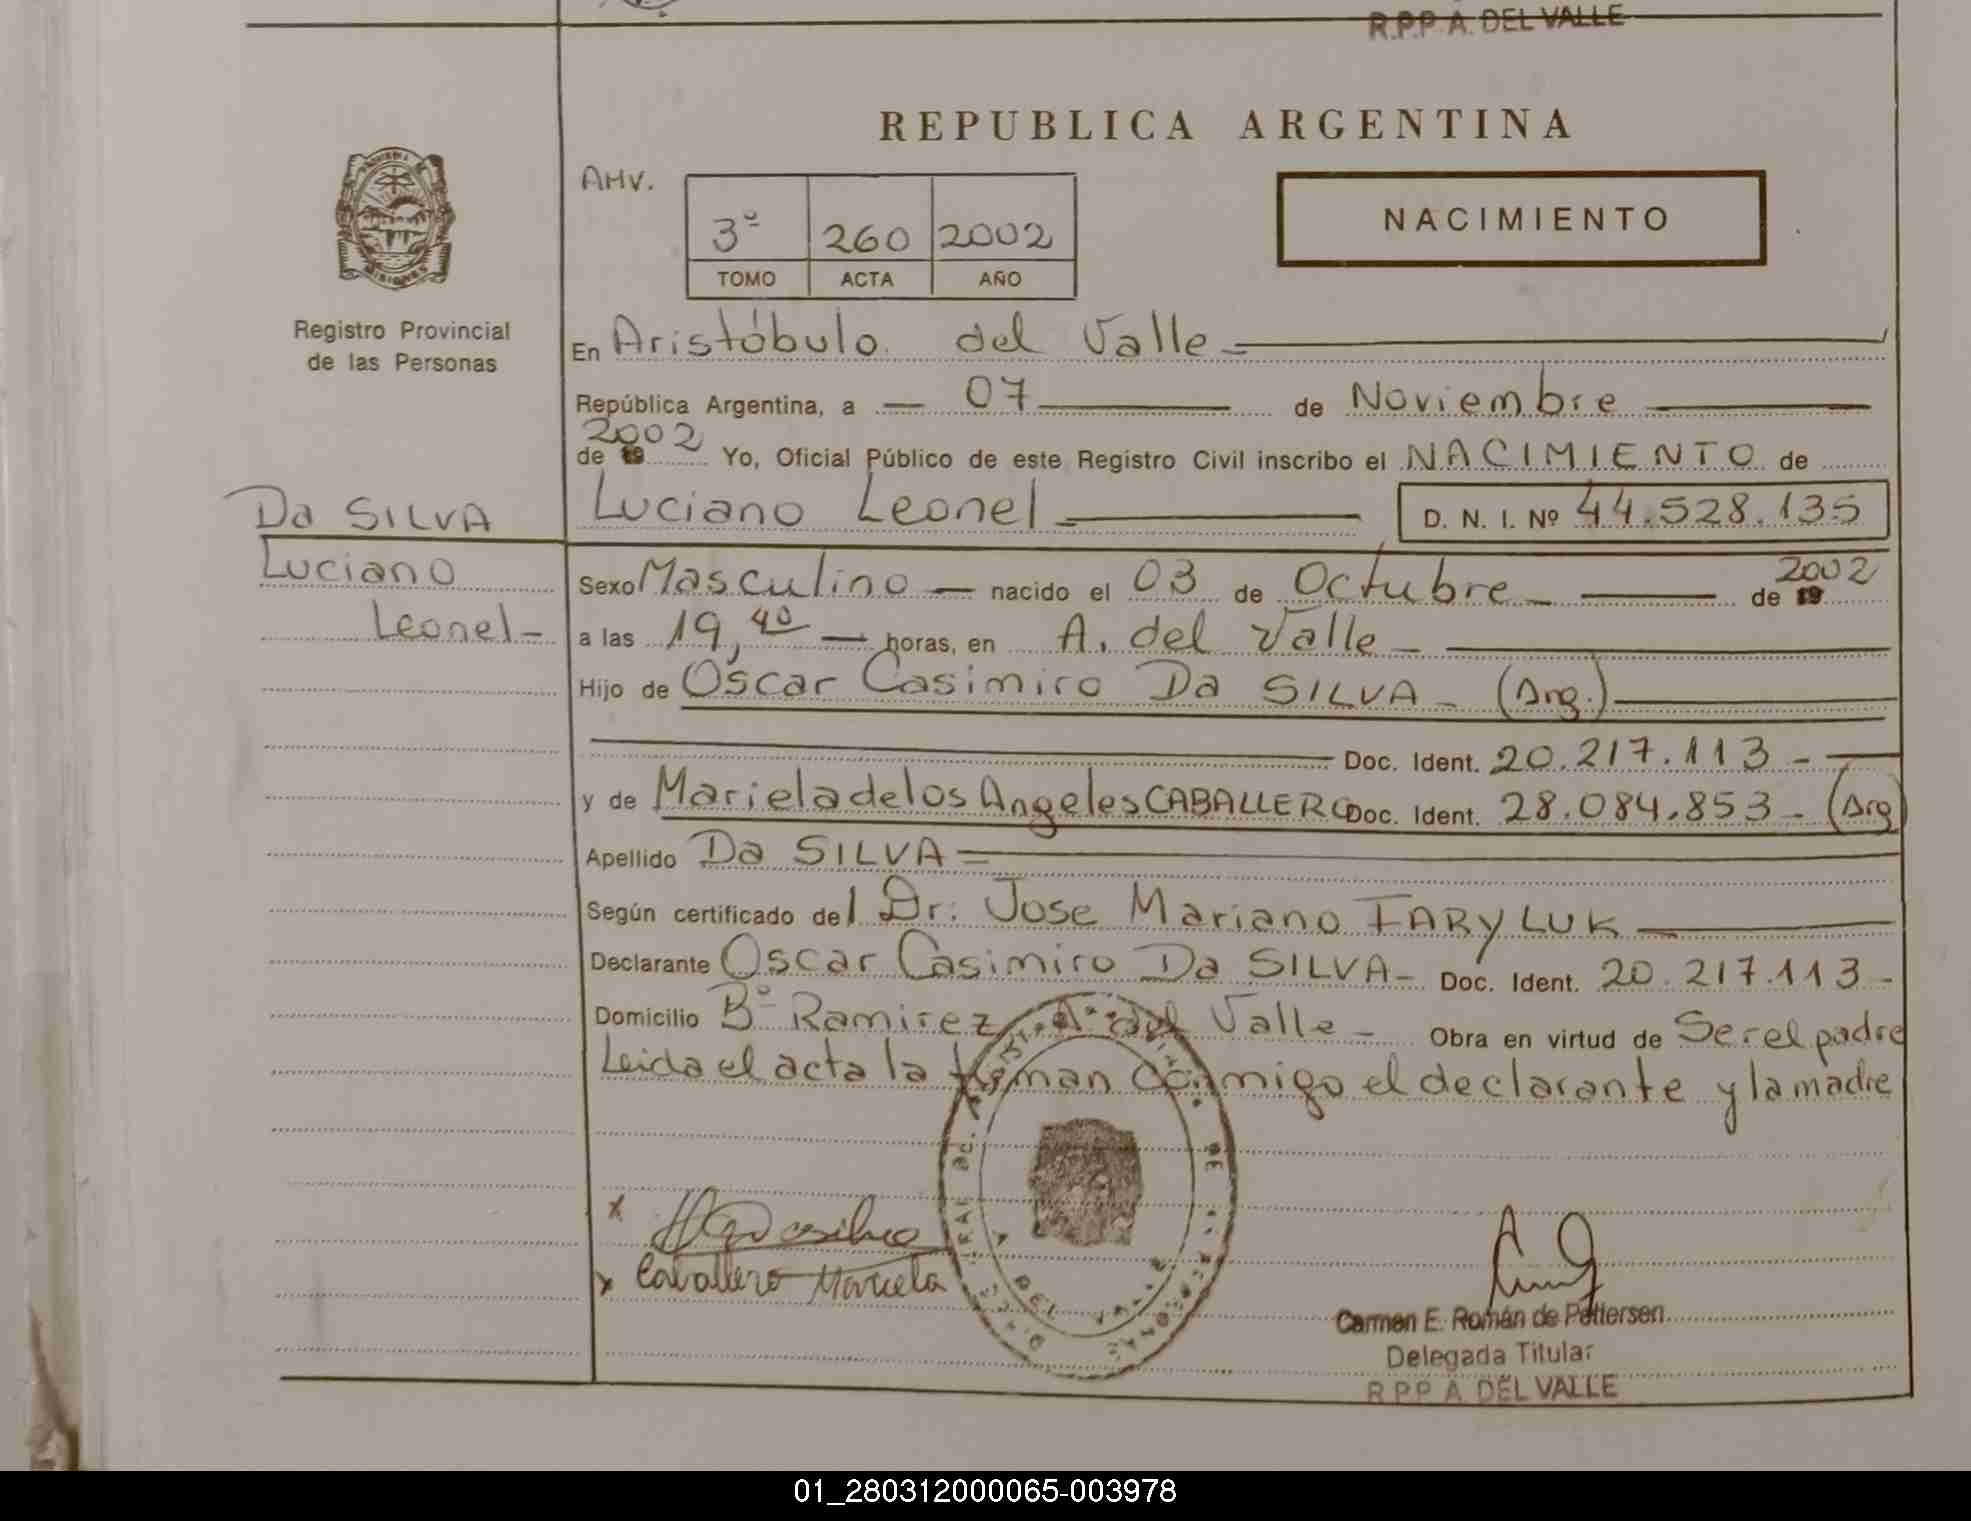 R.P.P A. DEL VALLE
REPUBLICA ARGENTINA
AHV.
3º 260 2002
TOMO ACTA AÑO
NACIMIENTO
MISIONES
Registro Provincial
de las Personas
En Aristóbulo del Valle
República Argentina, a 07 de Noviembre
2002
de 19 Yo, Oficial Público de este Registro Civil inscribo el NACIMIENTO de
Da SILVA
Luciano Leonel D. N. I. Nº 44.528.135
Luciano
Leonel-
Sexo Masculino nacido el 03 de Octubre de 19 2002
a las 19,40 horas, en A. del Valle
Hijo de Oscar Casimiro Da SILVA - (Arg.)
Doc. Ident. 20.217.113 -
y de Mariela de los Angeles CABALLERO Doc. Ident. 28.084.853 - (Arg
Apellido Da SILVA
Según certificado del Dr. Jose Mariano FARYLUK
Declarante Oscar Casimiro Da SILVA- Doc. Ident. 20.217.113 -
Domicilio Bº Ramirez A. del Valle - Obra en virtud de Ser el padre
Leida el acta la firman conmigo el declarante y la madre
x
x Caballero Mariela
A DEL VALLE
Carmen E. Román de Pettersen
Delegada Titular
R.P.P A. DEL VALLE
01_280312000065-003978